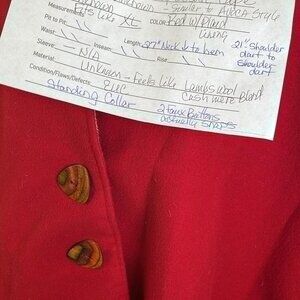 Unknown - Similar to Alpaca Style
Measurements Fits Like XL COLOR: Red w/Plaid
Pit to Pit: Lining
Waist: Length: 27" Neck to hem 21" Shoulder
Inseam: Rise: dart to
Sleeve: - N/A shoulder
Material: Unknown - feels like Lambswool dart
Condition/Flaws/Defects: EUC Cashmere Blend
Standing Collar 2 faux Buttons
actually snaps